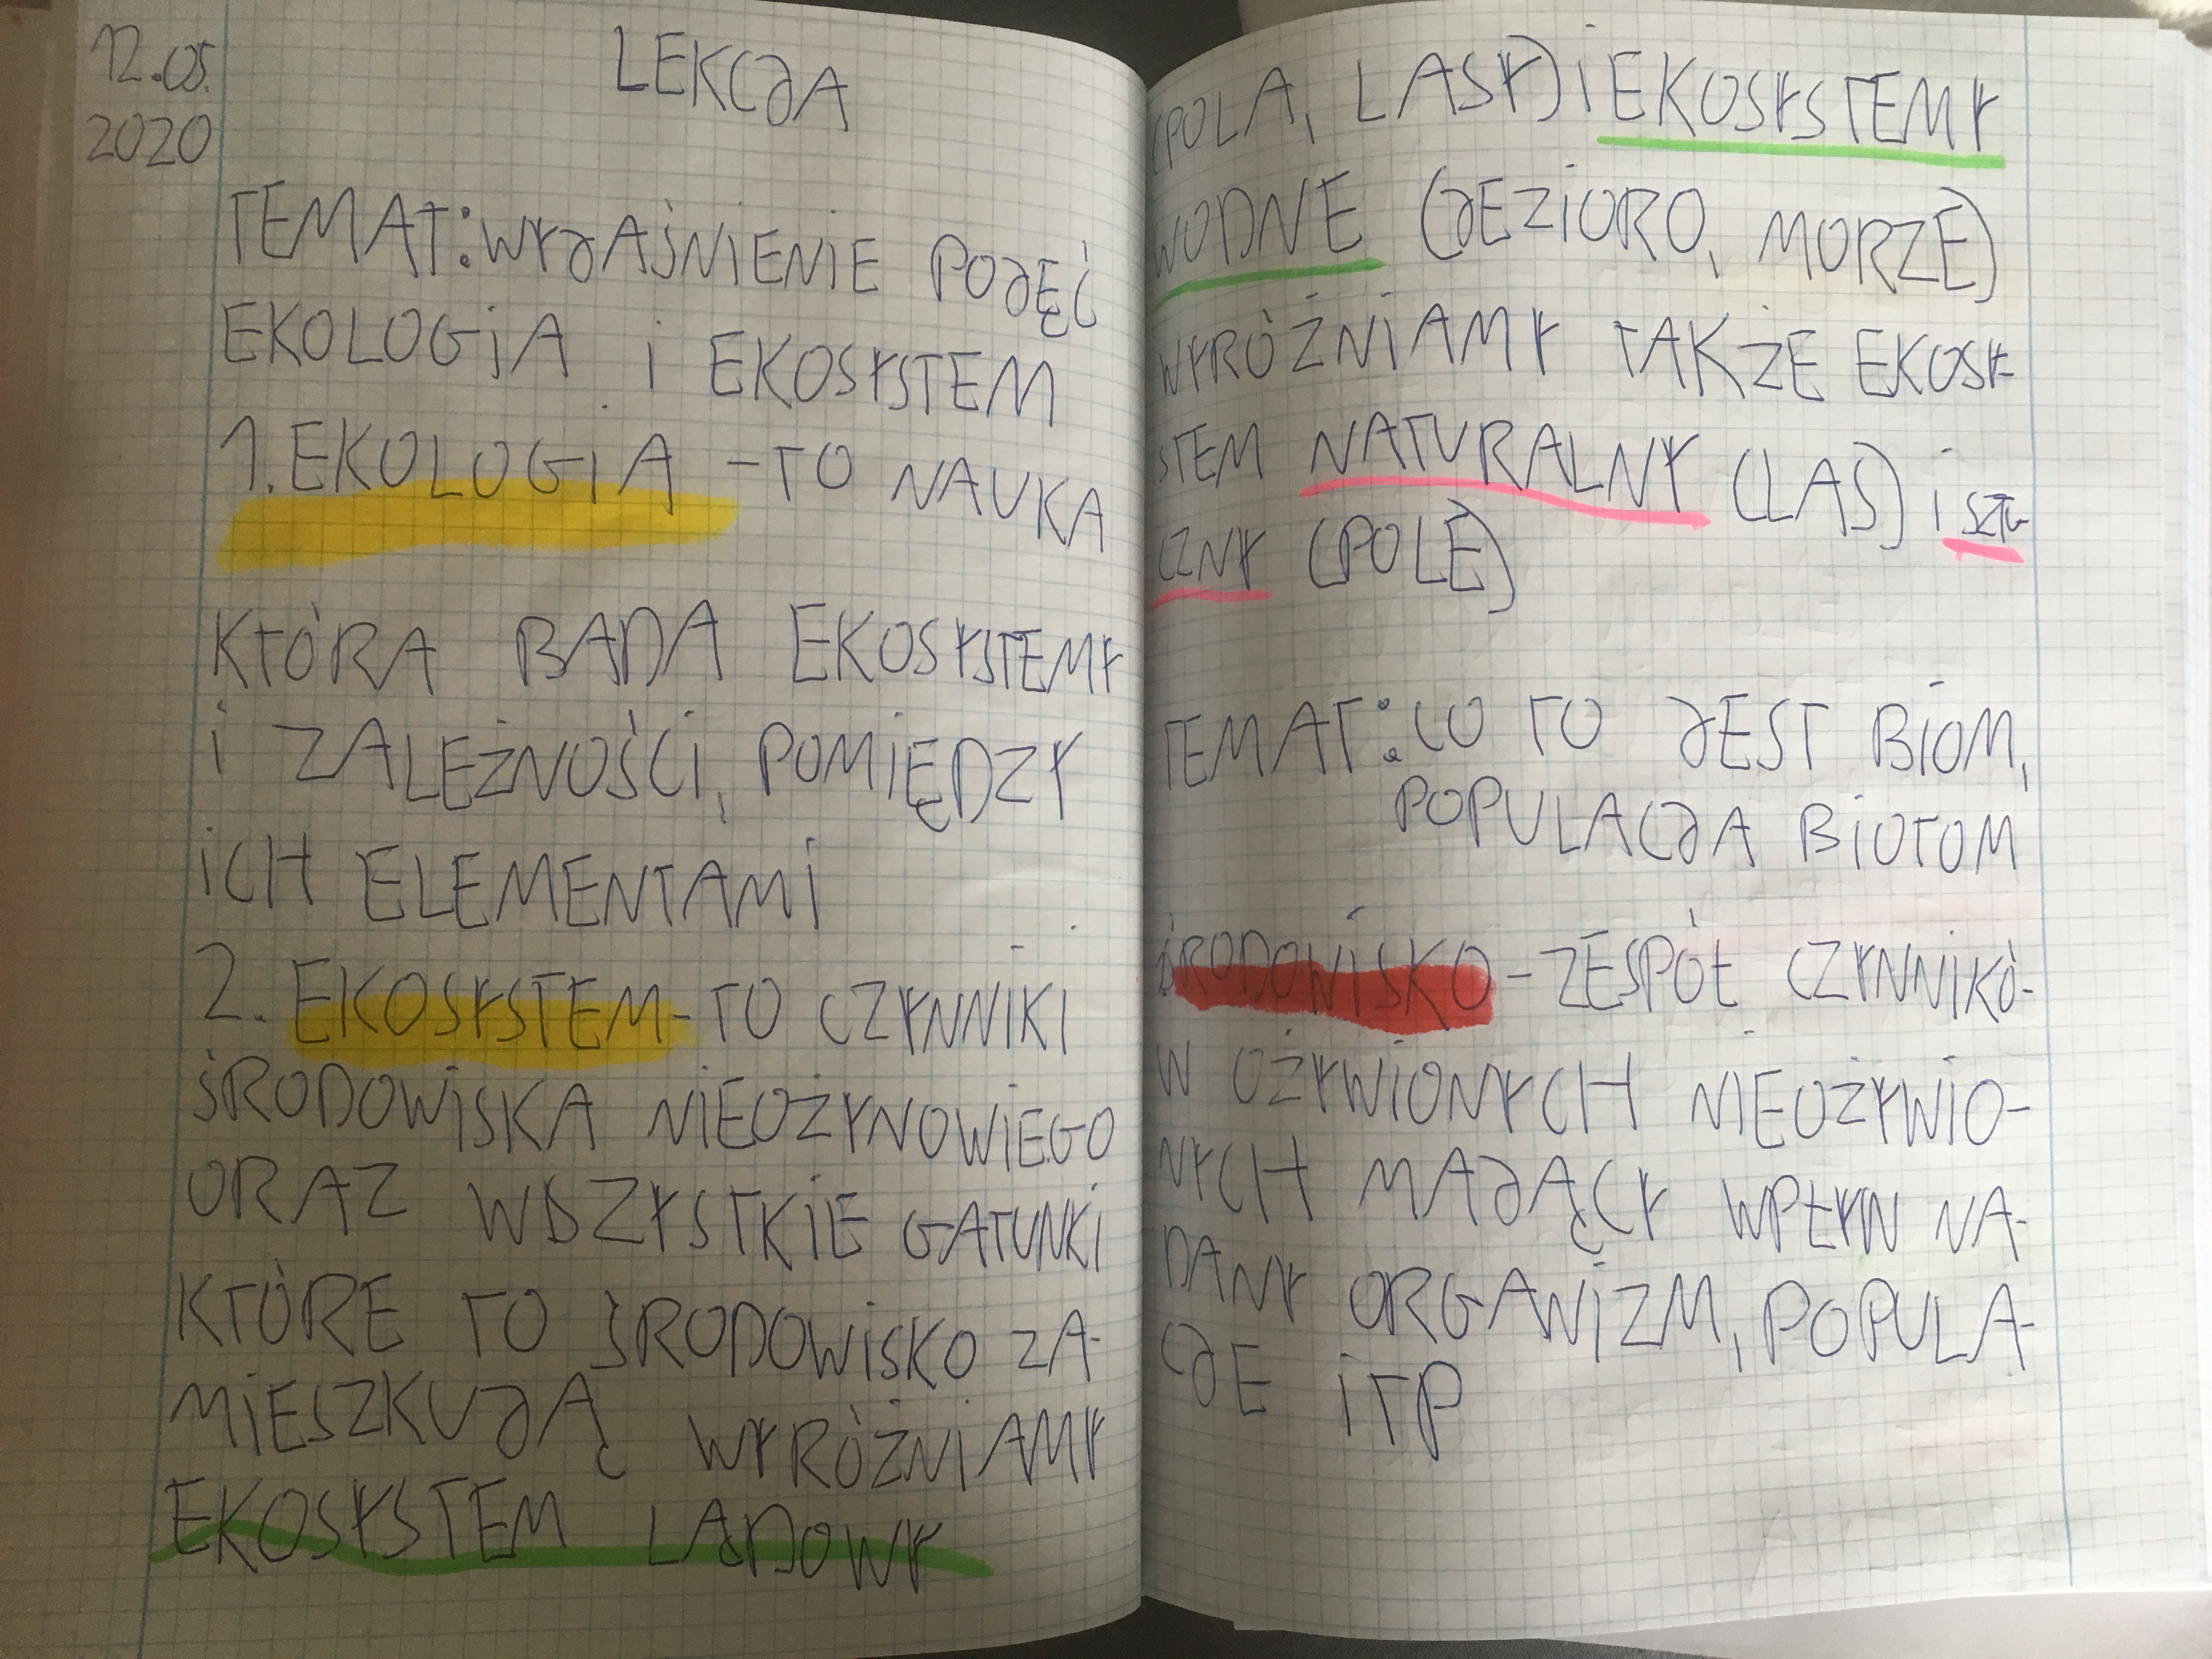 12.05.
2020
LEKCJA
TEMAT: WYJAŚNIENIE POJĘĆ
EKOLOGIA i EKOSYSTEM
1. EKOLOGIA - TO NAUKA
KTÓRA BADA EKOSYSTEMY
i ZALEŻNOŚCI, POMIĘDZY
ICH ELEMENTAMI
2. EKOSYSTEM - TO CZYNNIKI
ŚRODOWISKA NIEOŻYNOWIEGO
ORAZ WSZYSTKIE GATUNKI
KTÓRE TO ŚRODOWISKO ZA-
MIESZKUJĄ WYRÓŻNIAMY
EKOSYSTEM LĄDOWY
(POLA, LASY) i EKOSYSTEMY
WODNE (JEZIORO, MORZE)
WYRÓŻNIAMY TAKŻE EKOSY-
STEM NATURALNY (LAS) i SZTU-
CZNY (POLE)
TEMAT: CO TO JEST BIOM,
POPULACJA BIOTOM
ŚRODOWISKO - ZESPÓŁ CZYNNIKÓ-
W OŻYWIONYCH NIEOŻYWIO-
NYCH MAJĄCY WPŁYW NA-
DANY ORGANIZM, POPULA-
CJE ITP